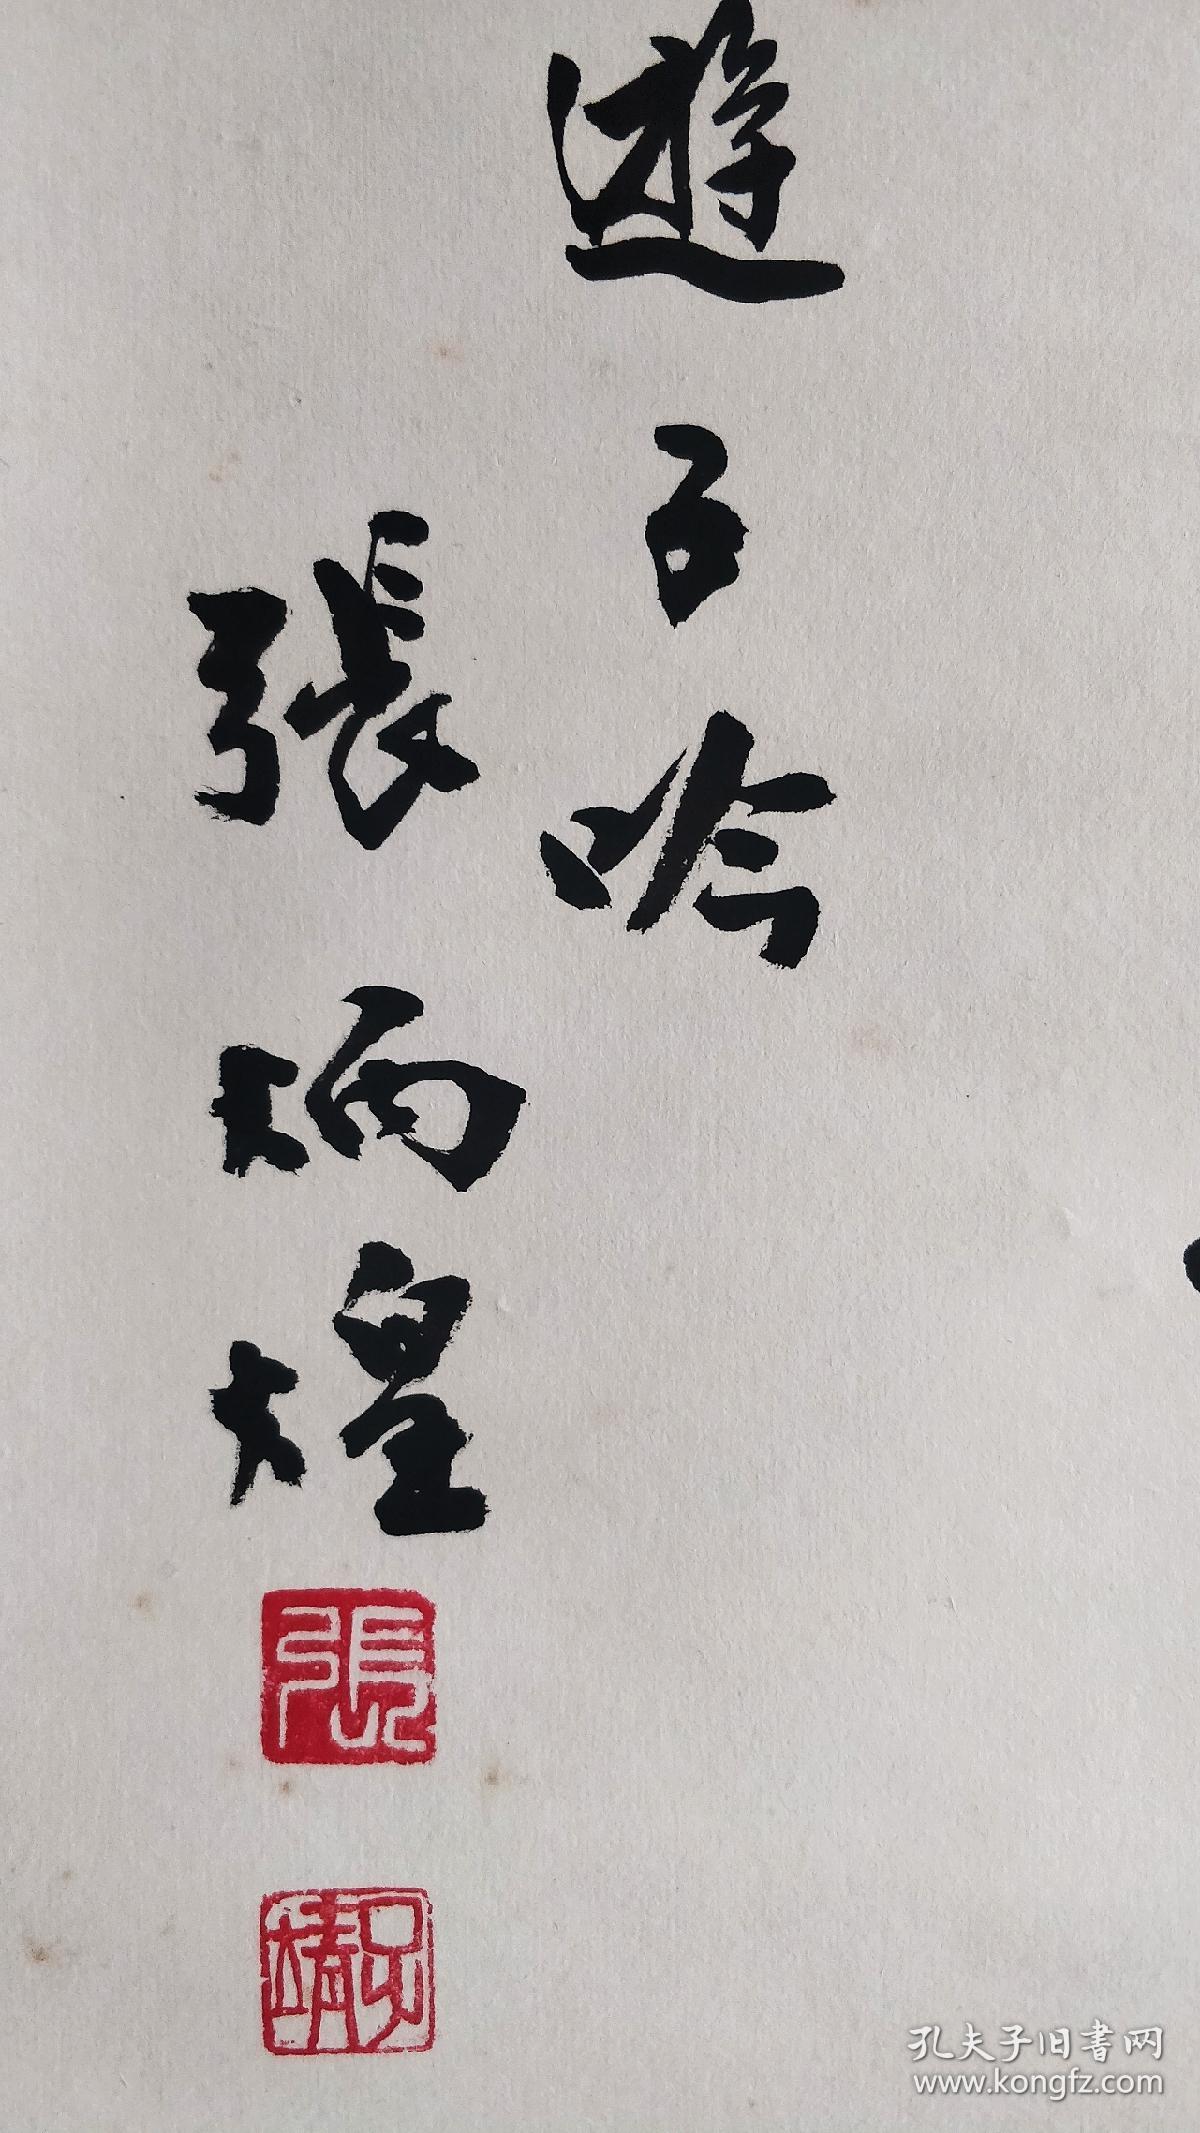 遊子吟
張炳煌
張
孔夫子旧書网
www.kongfz.com